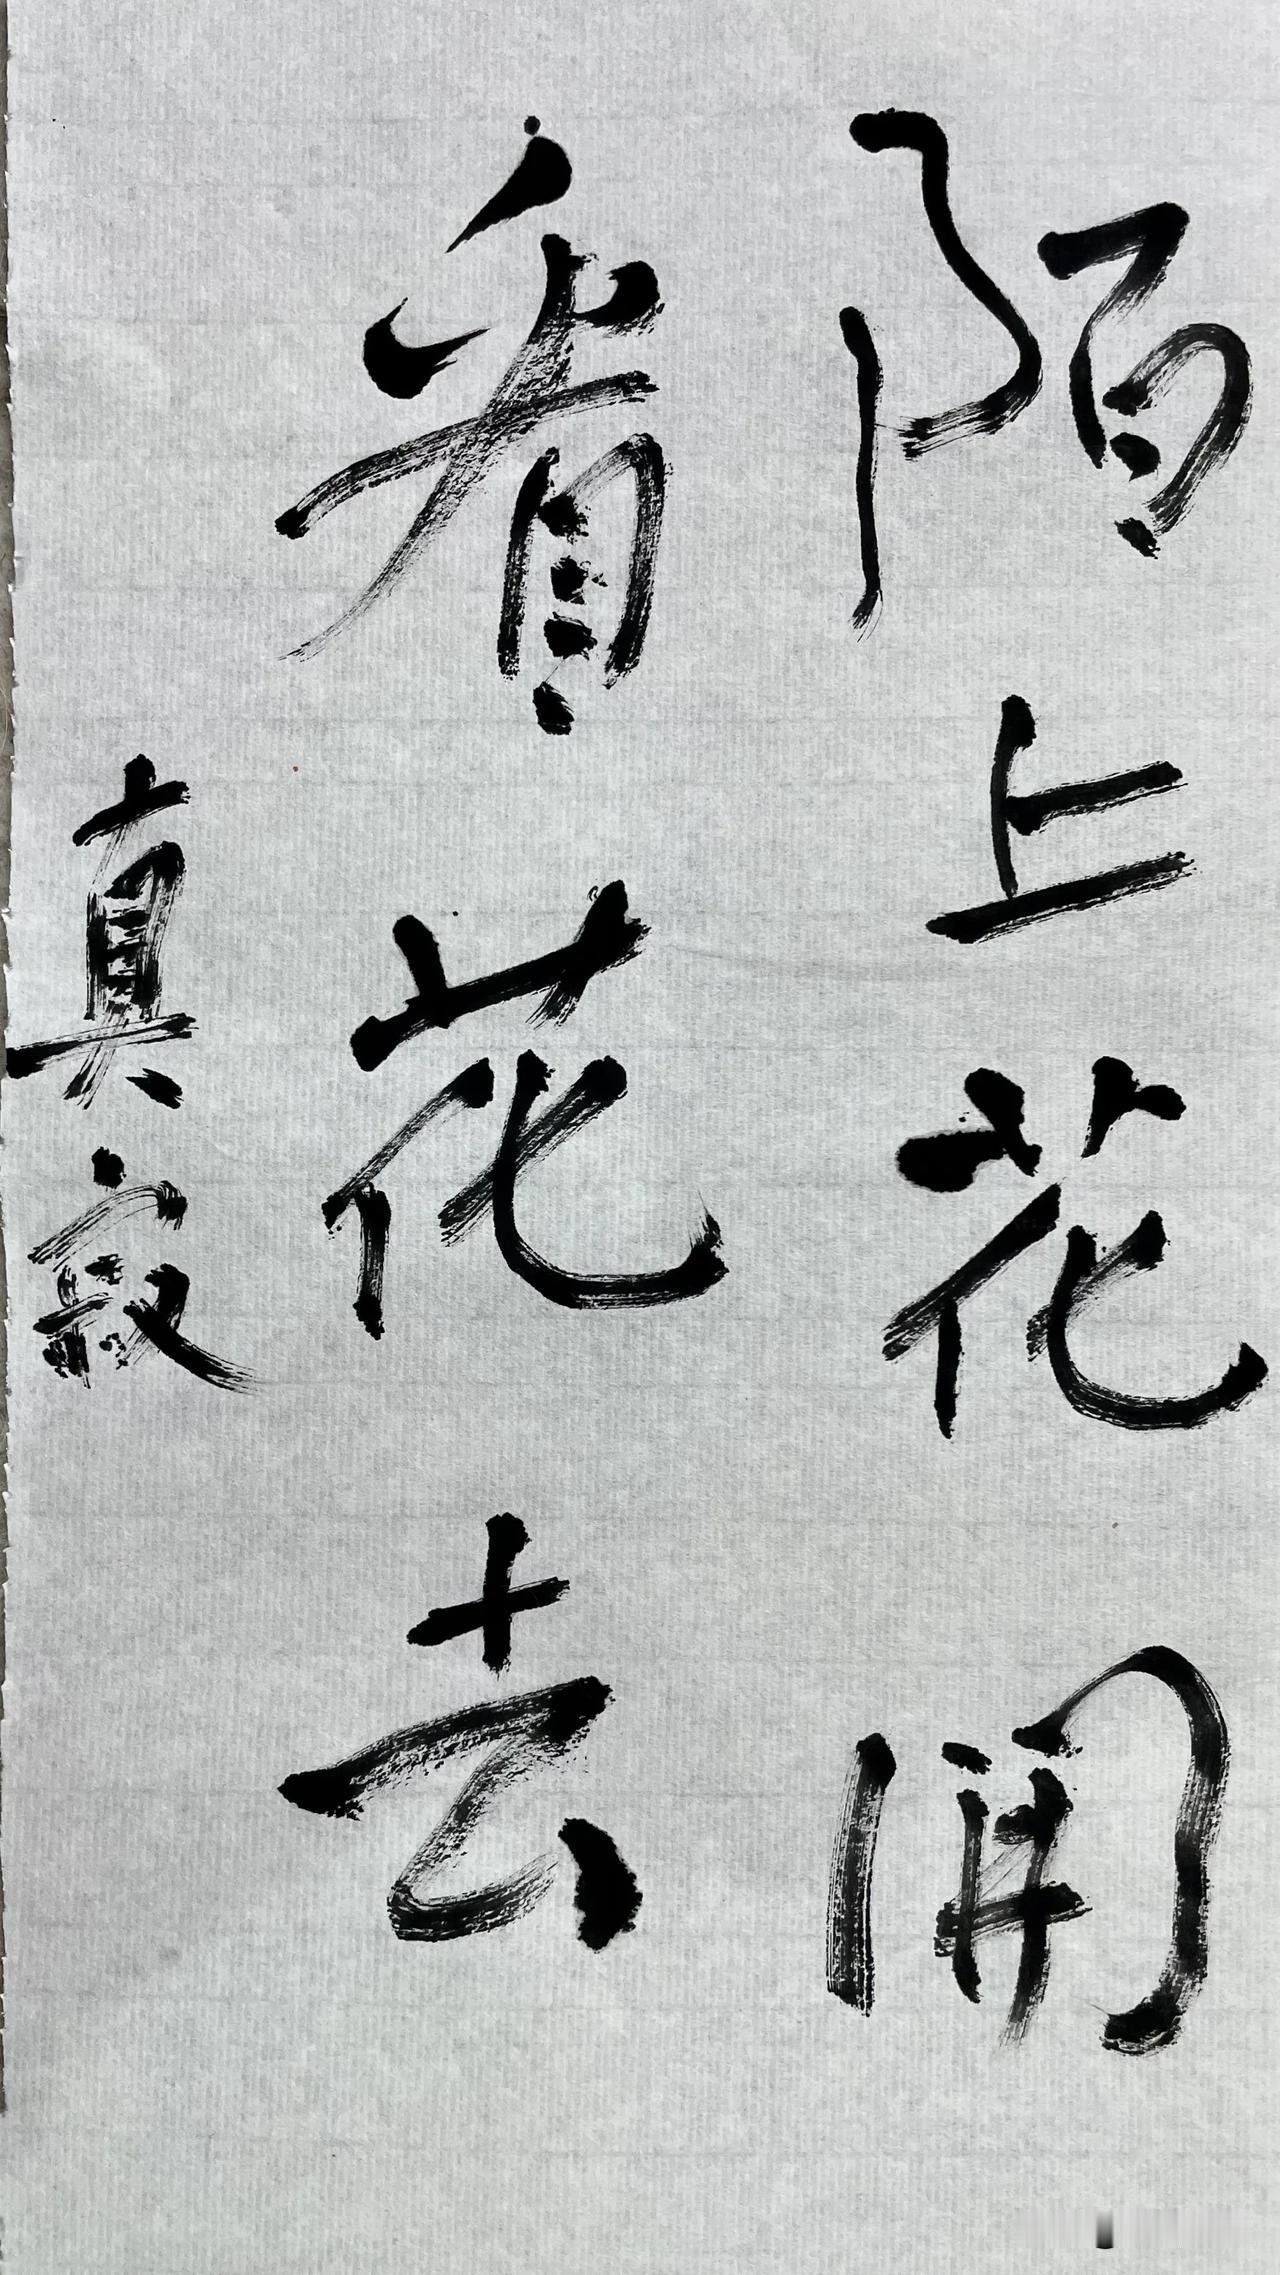 陌上花開
看花去
真寂